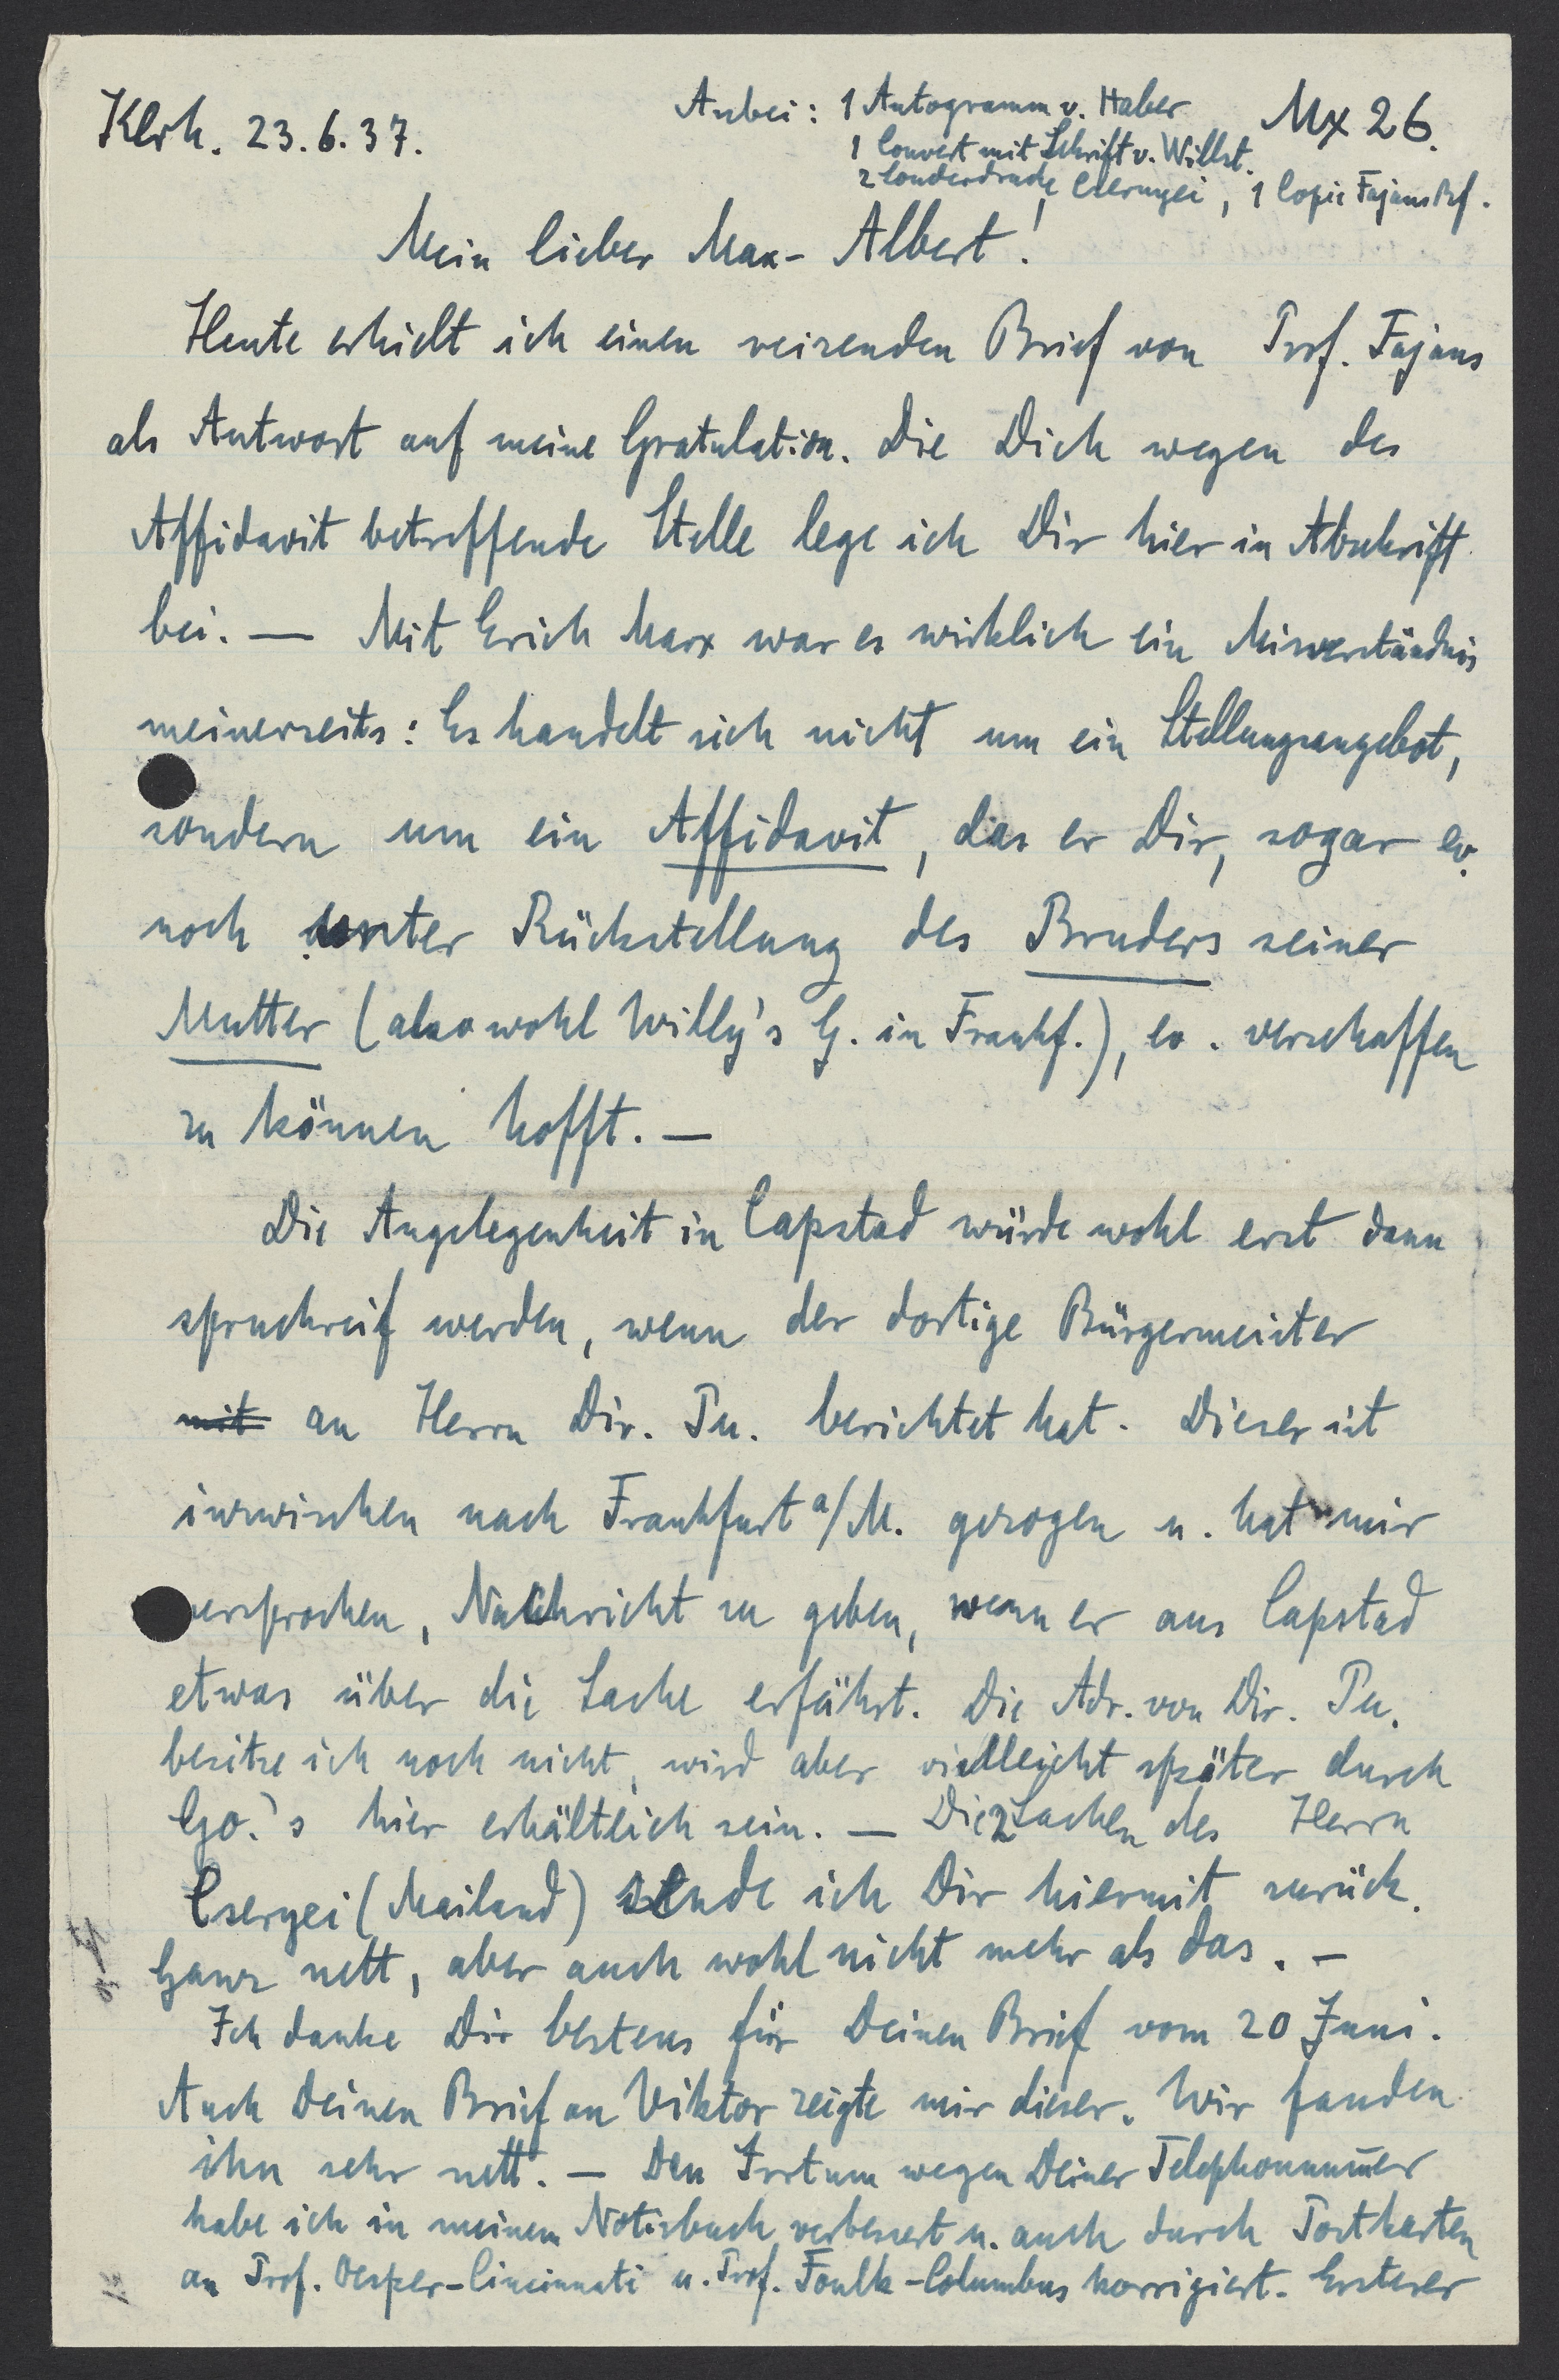 Klrh. 23.6.37.
Anbei: 1 Autogramm v. Haber
Mx 26.
1 Couvert mit Schrift v. Willst.
2 Sonderdrucke Csernyei, 1 Copie Fajans Bf.
Mein lieber Max-Albert!
Heute erhielt ich einen reizenden Brief von Prof. Fajans
als Antwort auf meine Gratulation. Die Dich wegen des
Affidavit betreffende Stelle lege ich Dir hier in Abschrift
bei. — Mit Erich Marx war es wirklich ein Misverständnis
meinerseits: Es handelt sich nicht um ein Stellungsangebot,
sondern um ein Affidavit, das er Dir, sogar ev.
noch unter Rückstellung des Bruders seiner
Mutter (also wohl Willy's G. in Frankf.), ev. verschaffen
zu können hofft. —
Die Angelegenheit in Capstad würde wohl erst dann
spruchreif werden, wenn der dortige Bürgermeister
mit an Herrn Dir. Pu. berichtet hat. Dieser ist
inzwischen nach Frankfurt a/M. gezogen u. hat mir
versprochen, Nachricht zu geben, wenn er aus Capstad
etwas über die Sache erfährt. Die Adr. von Dir. Pu.
besitze ich noch nicht, wird aber vielleicht später durch
Go.'s hier erhältlich sein. — Die 2 Sachen des Herrn
Csernyei (Mailand) sende ich Dir hiermit zurück.
Ganz nett, aber auch wohl nicht mehr als das. —
Ich danke Dir bestens für Deinen Brief vom 20 Juni.
Auch Deinen Brief an Viktor zeigte mir dieser. Wir fanden
ihn sehr nett. — Den Irrtum wegen Deiner Telephonnum̄er
habe ich in meinem Notizbuch verbessert u. auch durch Postkarten
an Prof. Oesper-Cincinnati u. Prof. Foulk-Columbus korrigiert. Ersterer